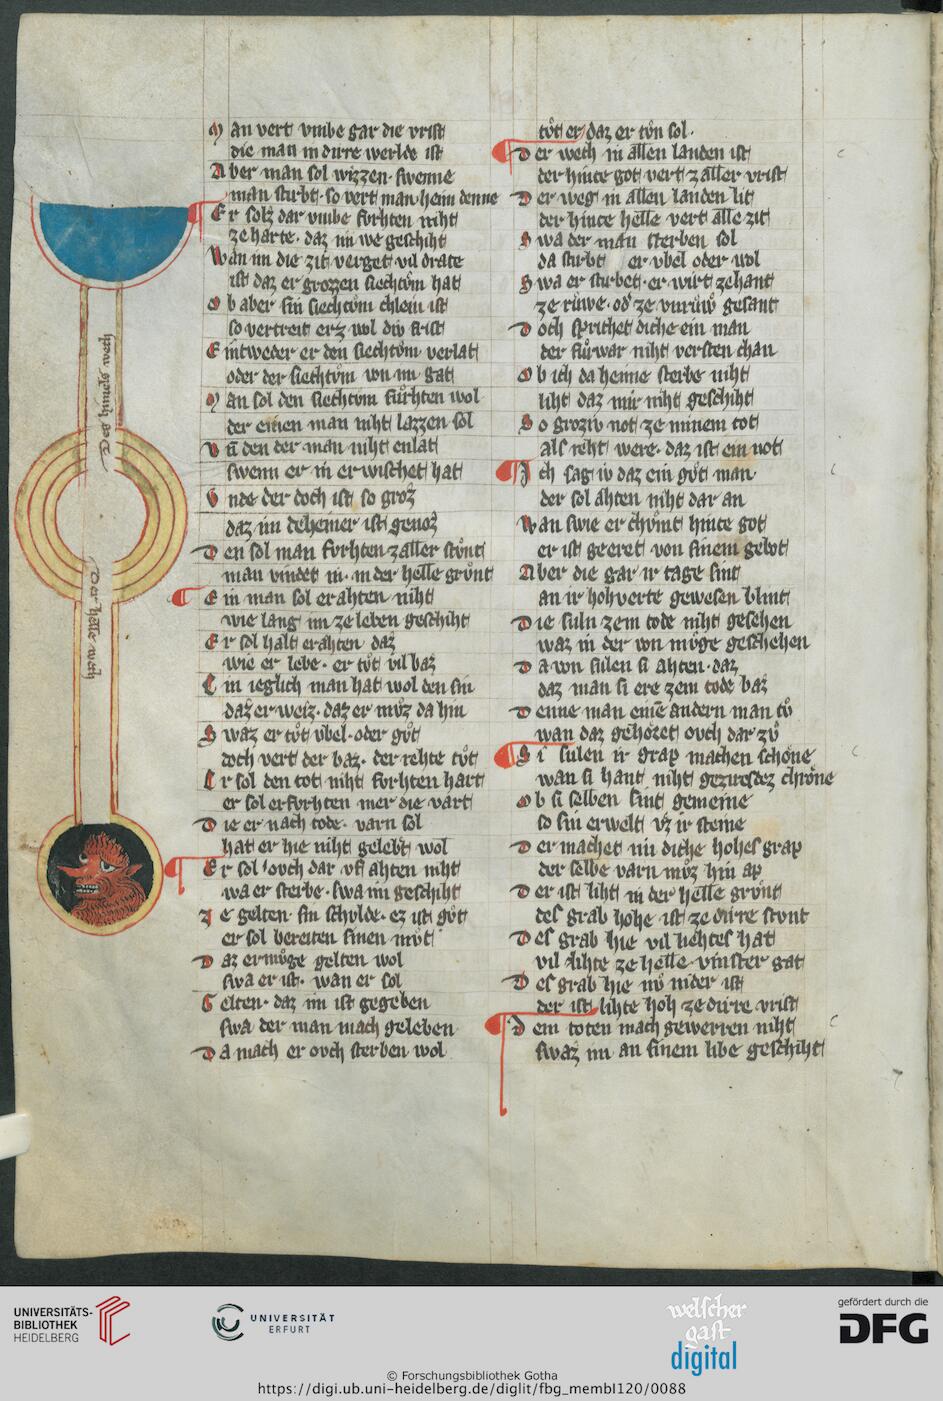 Man vert vmbe gar die vrist
die man in dirre werlde ist
Aber man sol wizzen. swenne
man stirbt. so vert man heim denne
Er solz dar vmbe furhten niht
ze harte. daz im we geschiht
Wan im die zit verget vil drate
ist daz er grozzen siechtvͦm hat
Ob aber sin siechtvm chlein ist
so vertreit erz wol die frist
Eintweder er den siechtvm verlat
oder der siechtvͦm von im gat
Man sol den siechtvm fuͤrhten wol
der einen man niht lazzen sol
Vn̄ den der man niht enlat
swenn er in erwischet hat
Vnde der doch ist so groz
daz im deheiner ist genoz
Den sol man fvrhten zaller stvͦnt
man vindet in. in der helle grvͦnt
Ein man sol erahten niht
wie lang im ze leben geschiht
Er sol halt erahten daz
wie er lebe. er tvͦt vil baz
Ein ieglich man hat wol den sin
daz er weiz. daz er mvͦz da hin
Swaz er tvͦt vbel. oder gvͦt
doch vert der baz. der rehte tvͦt
Er sol den tot niht forhten hart
er sol erfvrhten mer die vart
Die er nach tode. varn sol
hat er hie niht gelebt wol
Er sol ovch dar vf ahten niht
wa er sterbe. swa im geschiht
Ze gelten. sin schvlde. ez ist gvͦt
er sol bereiten sinen mvͦt
Daz er mvͤge gelten wol
swa er ist. wan er sol
Gelten. daz im ist gegeben
swa der man mach geleben
Da mach er ovch sterben wol
tvͦt er daz er tvͦn sol.
Der wech in allen landen ist
der hince got vert zaller vrist
Der weg in allen landen lit
der hince helle vert alle zit
Swa der man sterben sol
da stirbt er vbel oder wol
Swa er stirbet. er wirt zehant
ze rvͦwe. od ze vnrvͦw gesant
Doch sprichet diche ein man
der fuͤrwar niht versten chan
Ob ich da heime sterbe niht
liht daz mir niht geschiht
So groziv not ze minem tot
als reht were. daz ist ein not
Ich sag iv daz ein gvͦt man
der sol ahten niht dar an
Wan swie er chvͦmt hince got
er ist geeret von sinem gebot
Aber die gar ir tage sint
an ir hohverte gewesen blint
Die suln zem tode niht gesehen
waz in der von mvͤge geschehen
Da von sulen si ahten. daz
daz man si ere zem tode baz
Denne man eine andern man tvͦ
wan daz gehoͤret ovch dar zvͦ
Si sulen ir grap machen schone
wan si hant niht gezwesdez chrone
Ob si selben sint gemeine
so sin erwelt vz ir steine
Der machet im diche hohes grap
der selbe varn mvͦz hin ap
Der ist liht in der helle grvnt
des grab hohe ist ze dirre stvnt
Des grab hie vil liehtes hat
vil lihte ze helle. vinster gat
Des grab hie nvͦ nider ist
der ist lihte hoh ze dirre vrist
Dem toten mach gewerren niht
swaz im an sinem libe geschiht
Des himels wech
Der helle wech
UNIVERSITÄTS-
BIBLIOTHEK
HEIDELBERG
UNIVERSITÄT
ERFURT
welscher
gast
digital
gefördert durch die
DFG
© Forschungsbibliothek Gotha
https://digi.ub.uni-heidelberg.de/diglit/fbg_membI120/0088